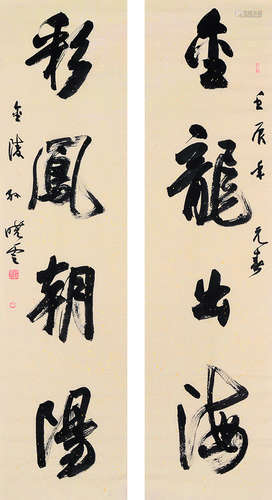 壬辰年元春
金龍出海
彩鳳朝陽
金陵孫曉雲